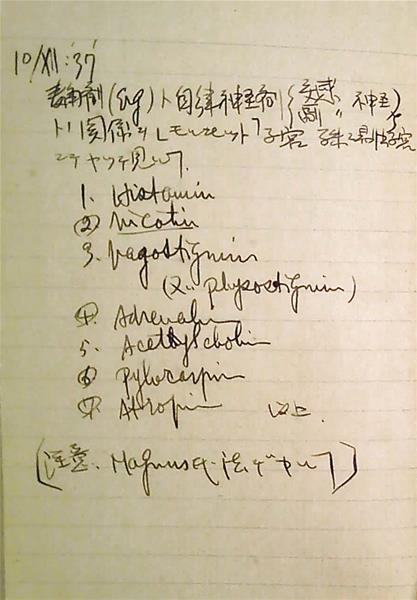 10/XII '37
麦角剤 (Erg) ト自律神経剤 (交感 神経)
副 〃
トノ関係ヲ モルモット子宮
ニテヤッテ見ル
1. Histamin
② Nicotin
3. Vagostigmin
(又ハ physostigmin)
④. Adrenalin
5. Acethylcholin
⑥ Pylocarpin
⑦ Atropin 以上
(注意、Magnus氏法デヤル)